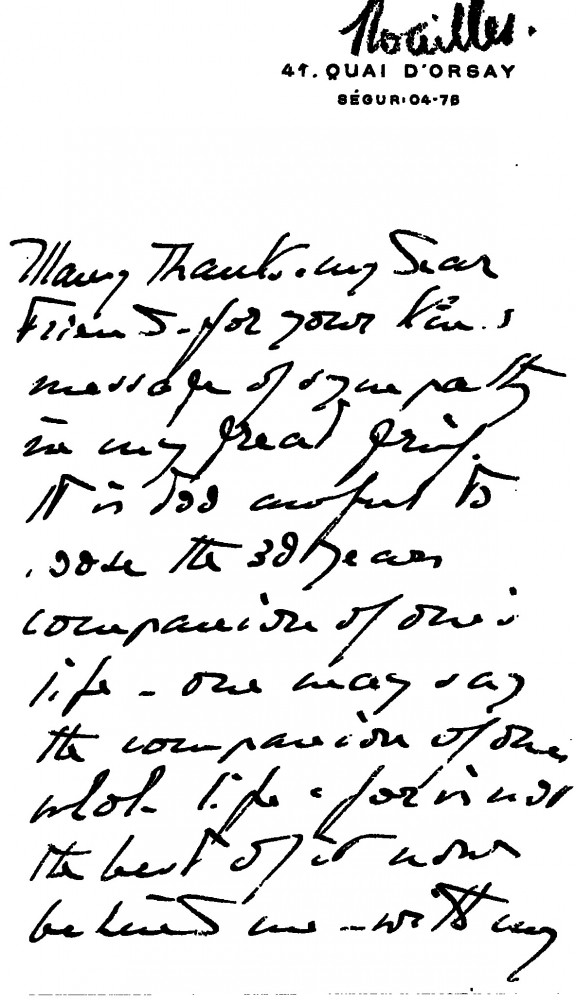 Noailles.
41. QUAI D'ORSAY
SÉGUR: 04-78
Many thanks, my dear
Friend - for your kind
message of sympathy
in my great grief.
It is too awful to
loose the 38 years
companion of one's
life - one may say
the companion of ones
whole life - for is not
the best of it now
behind me - with my